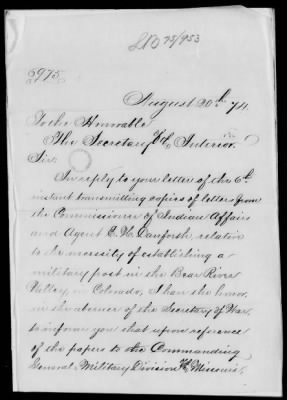 LB 75/953
5975.
August 20th 74.
To the Honorable
The Secretary of the Interior.
Sir:
In reply to your letter of the 6th
instant transmitting copies of letters from
the Commissioner of Indian Affairs
and Agent E. H. Danforth, relative
to the necessity of establishing a
military post in the Bear River
Valley, in Colorado, I have the honor,
in the absence of the Secretary of War,
to inform you that upon reference
of the papers to the Commanding
General, Military Division of the Missouri,